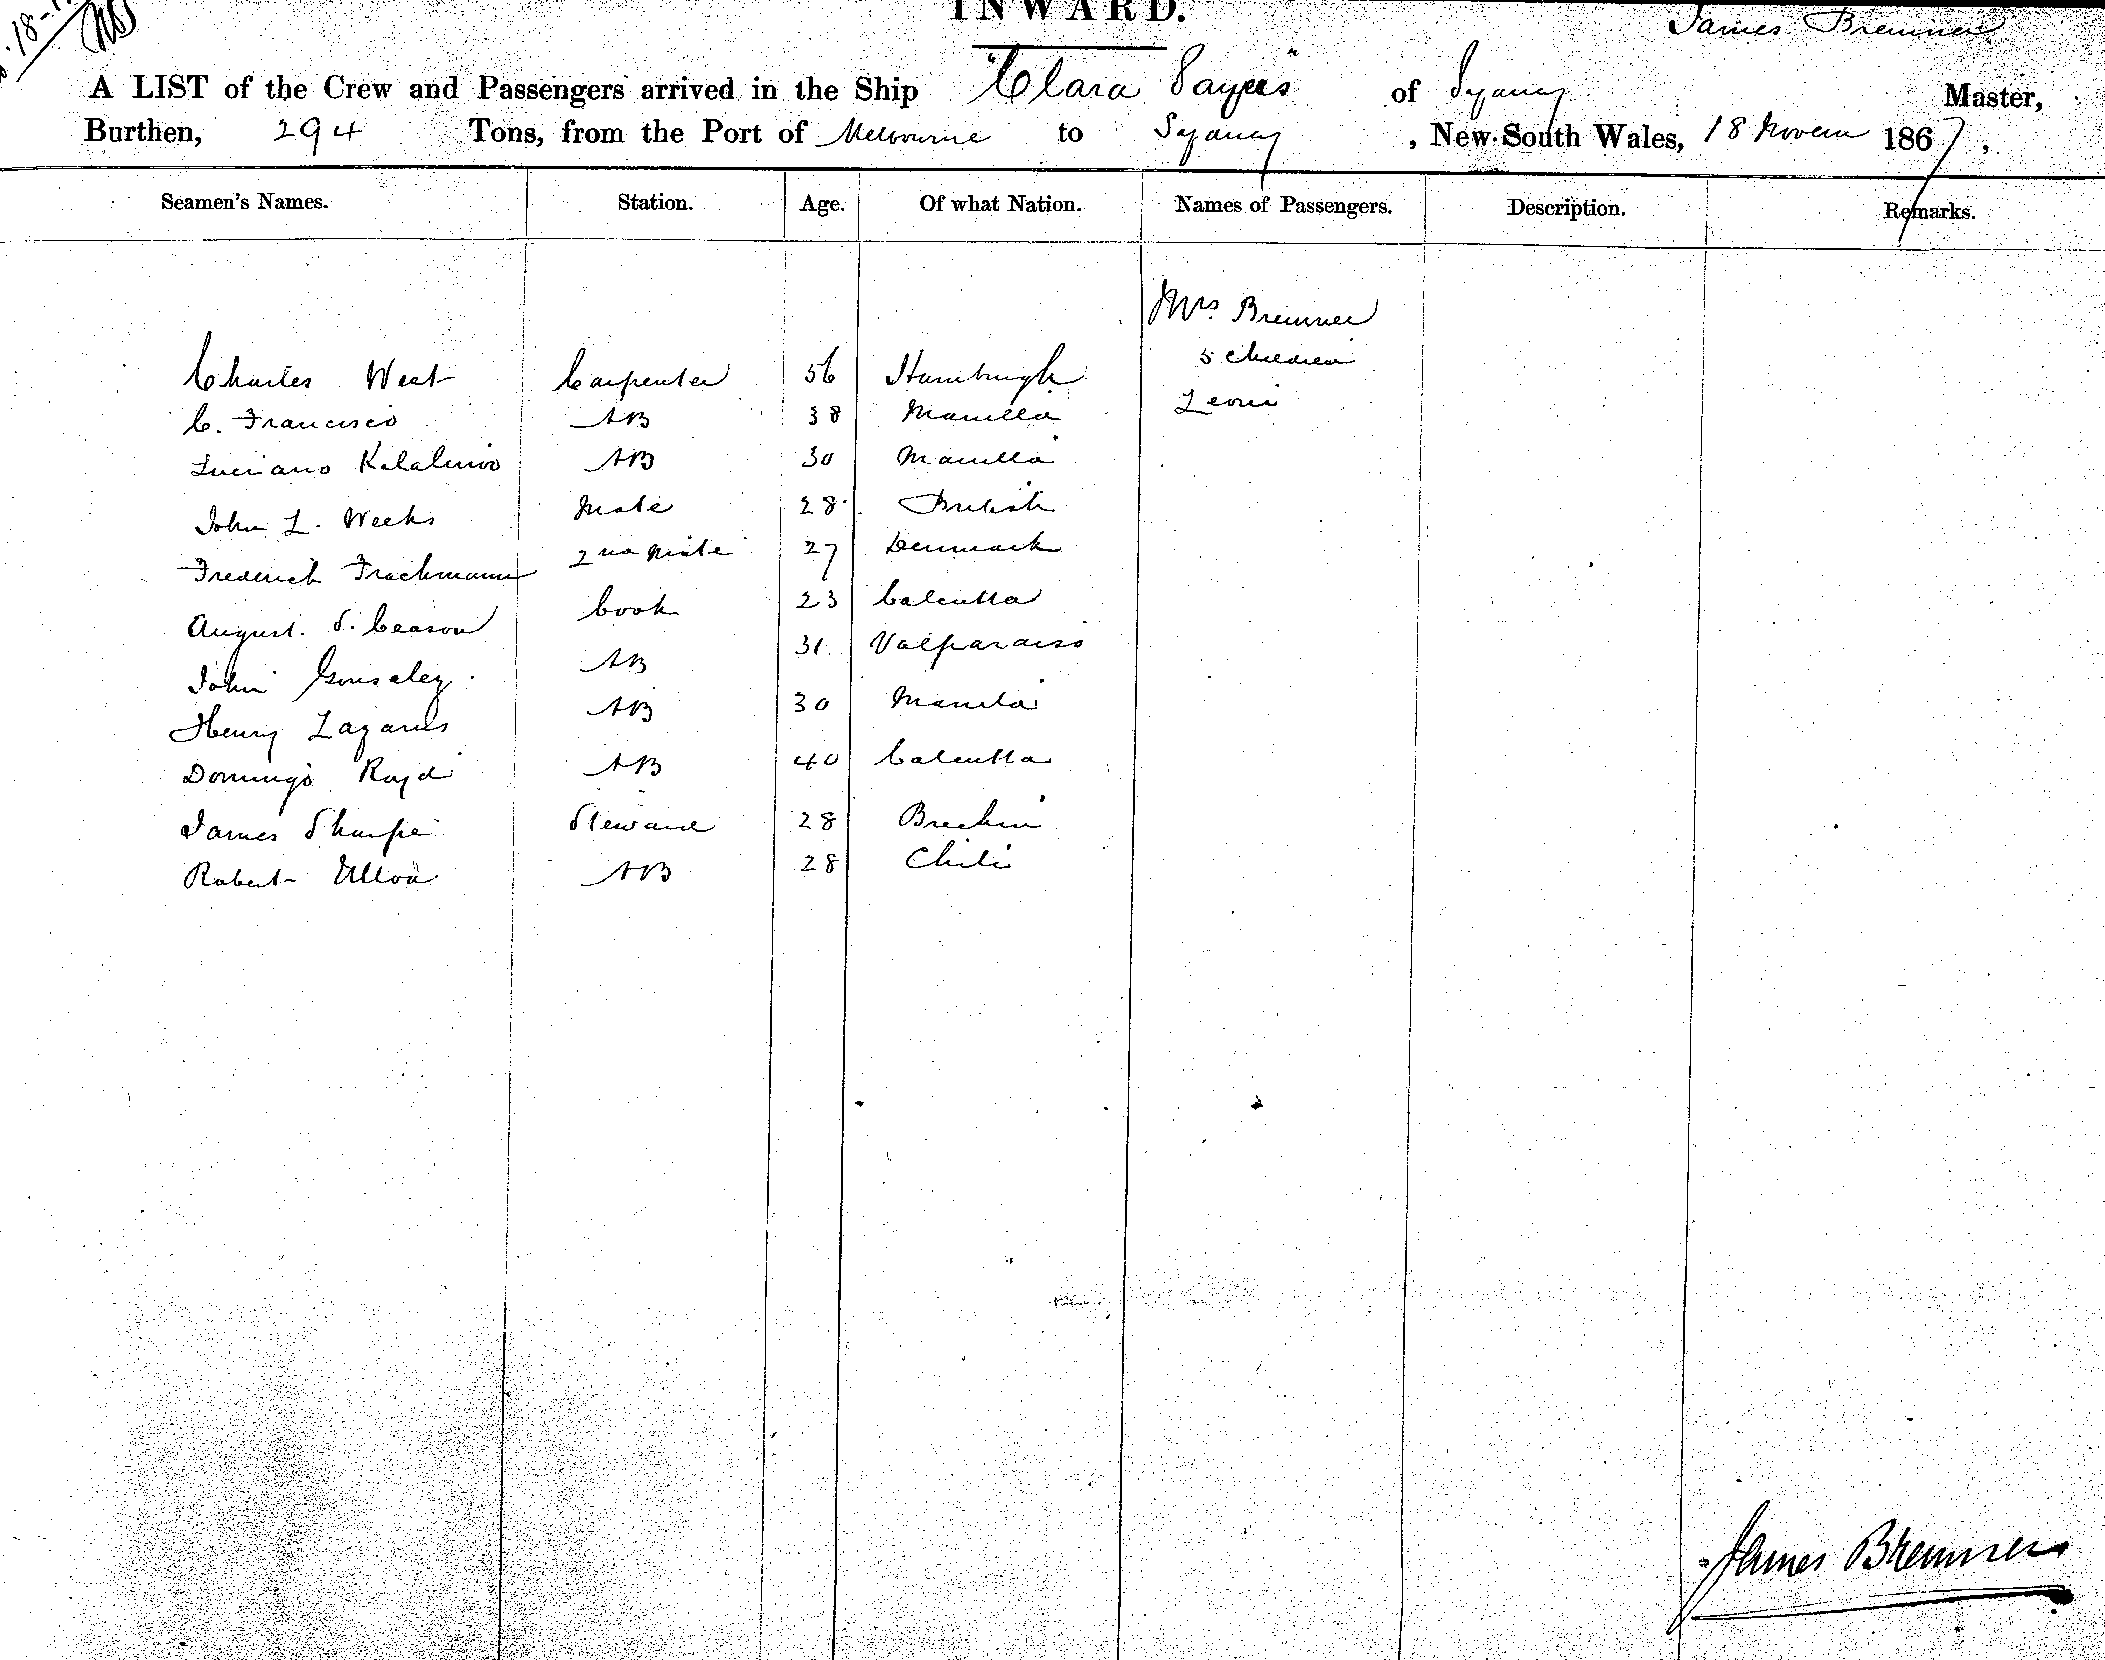 INWARD.
James Bremner
A LIST of the Crew and Passengers arrived in the Ship "Clara Sayers" of Sydney Master,
Burthen, 294 Tons, from the Port of Melbourne to Sydney, New South Wales, 18 Novem 1867.
Seamen's Names. Station. Age. Of what Nation. Names of Passengers. Description. Remarks.
Mrs Bremner
5 children
Charles West Carpenter 56 Hamburgh
C. Francisco AB 38 Manilla
Luciano AB 30 Manilla
John L. Weeks Mate 28 British
Frederick Trackmann 2nd Mate 27 Denmark
August. S. Ceason Cook 23 Calcutta
John Gonsaley AB 31 Valparaiso
Henry Lazarus AB 30 Manila
Domingo AB 40 Calcutta
James Sharpe Steward 28 Brechin
Robert Ulloa AB 28 Chili
James Bremner